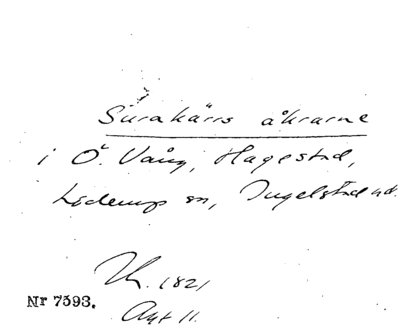 Surakärrs åkrarne
i Ö. Vång, Hagestad,
Löderup sn, Ingelstad hd.
1821
Akt 11.
Nr 7393.